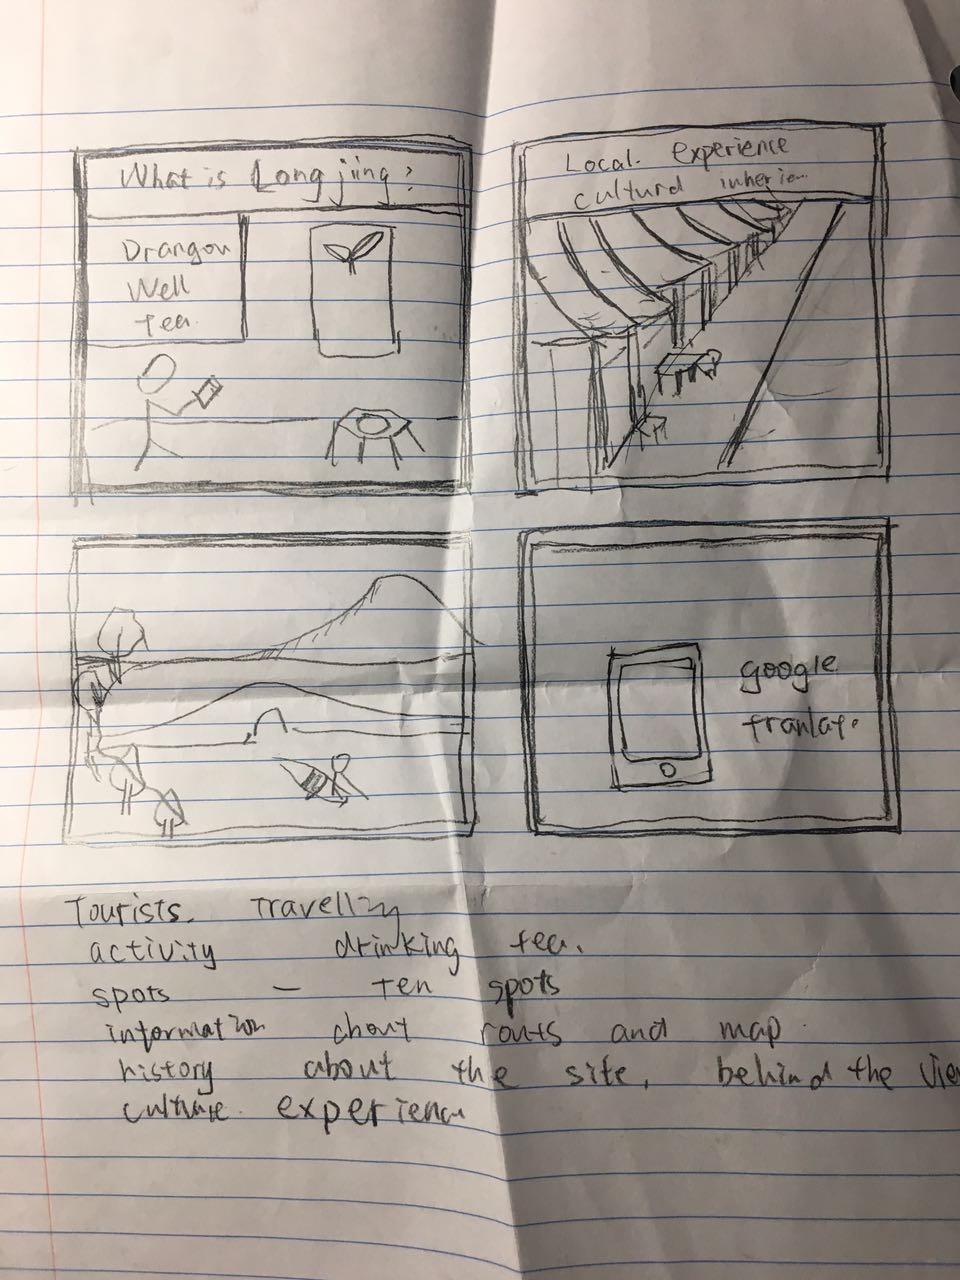 What is Longjing?
Drangon
Well
Tea.
Local. experience
cultural
google
Tourists. Travelling
activity drinking tea.
spots — Ten spots
information about routs and map.
history about the site, behind the view
culture experience